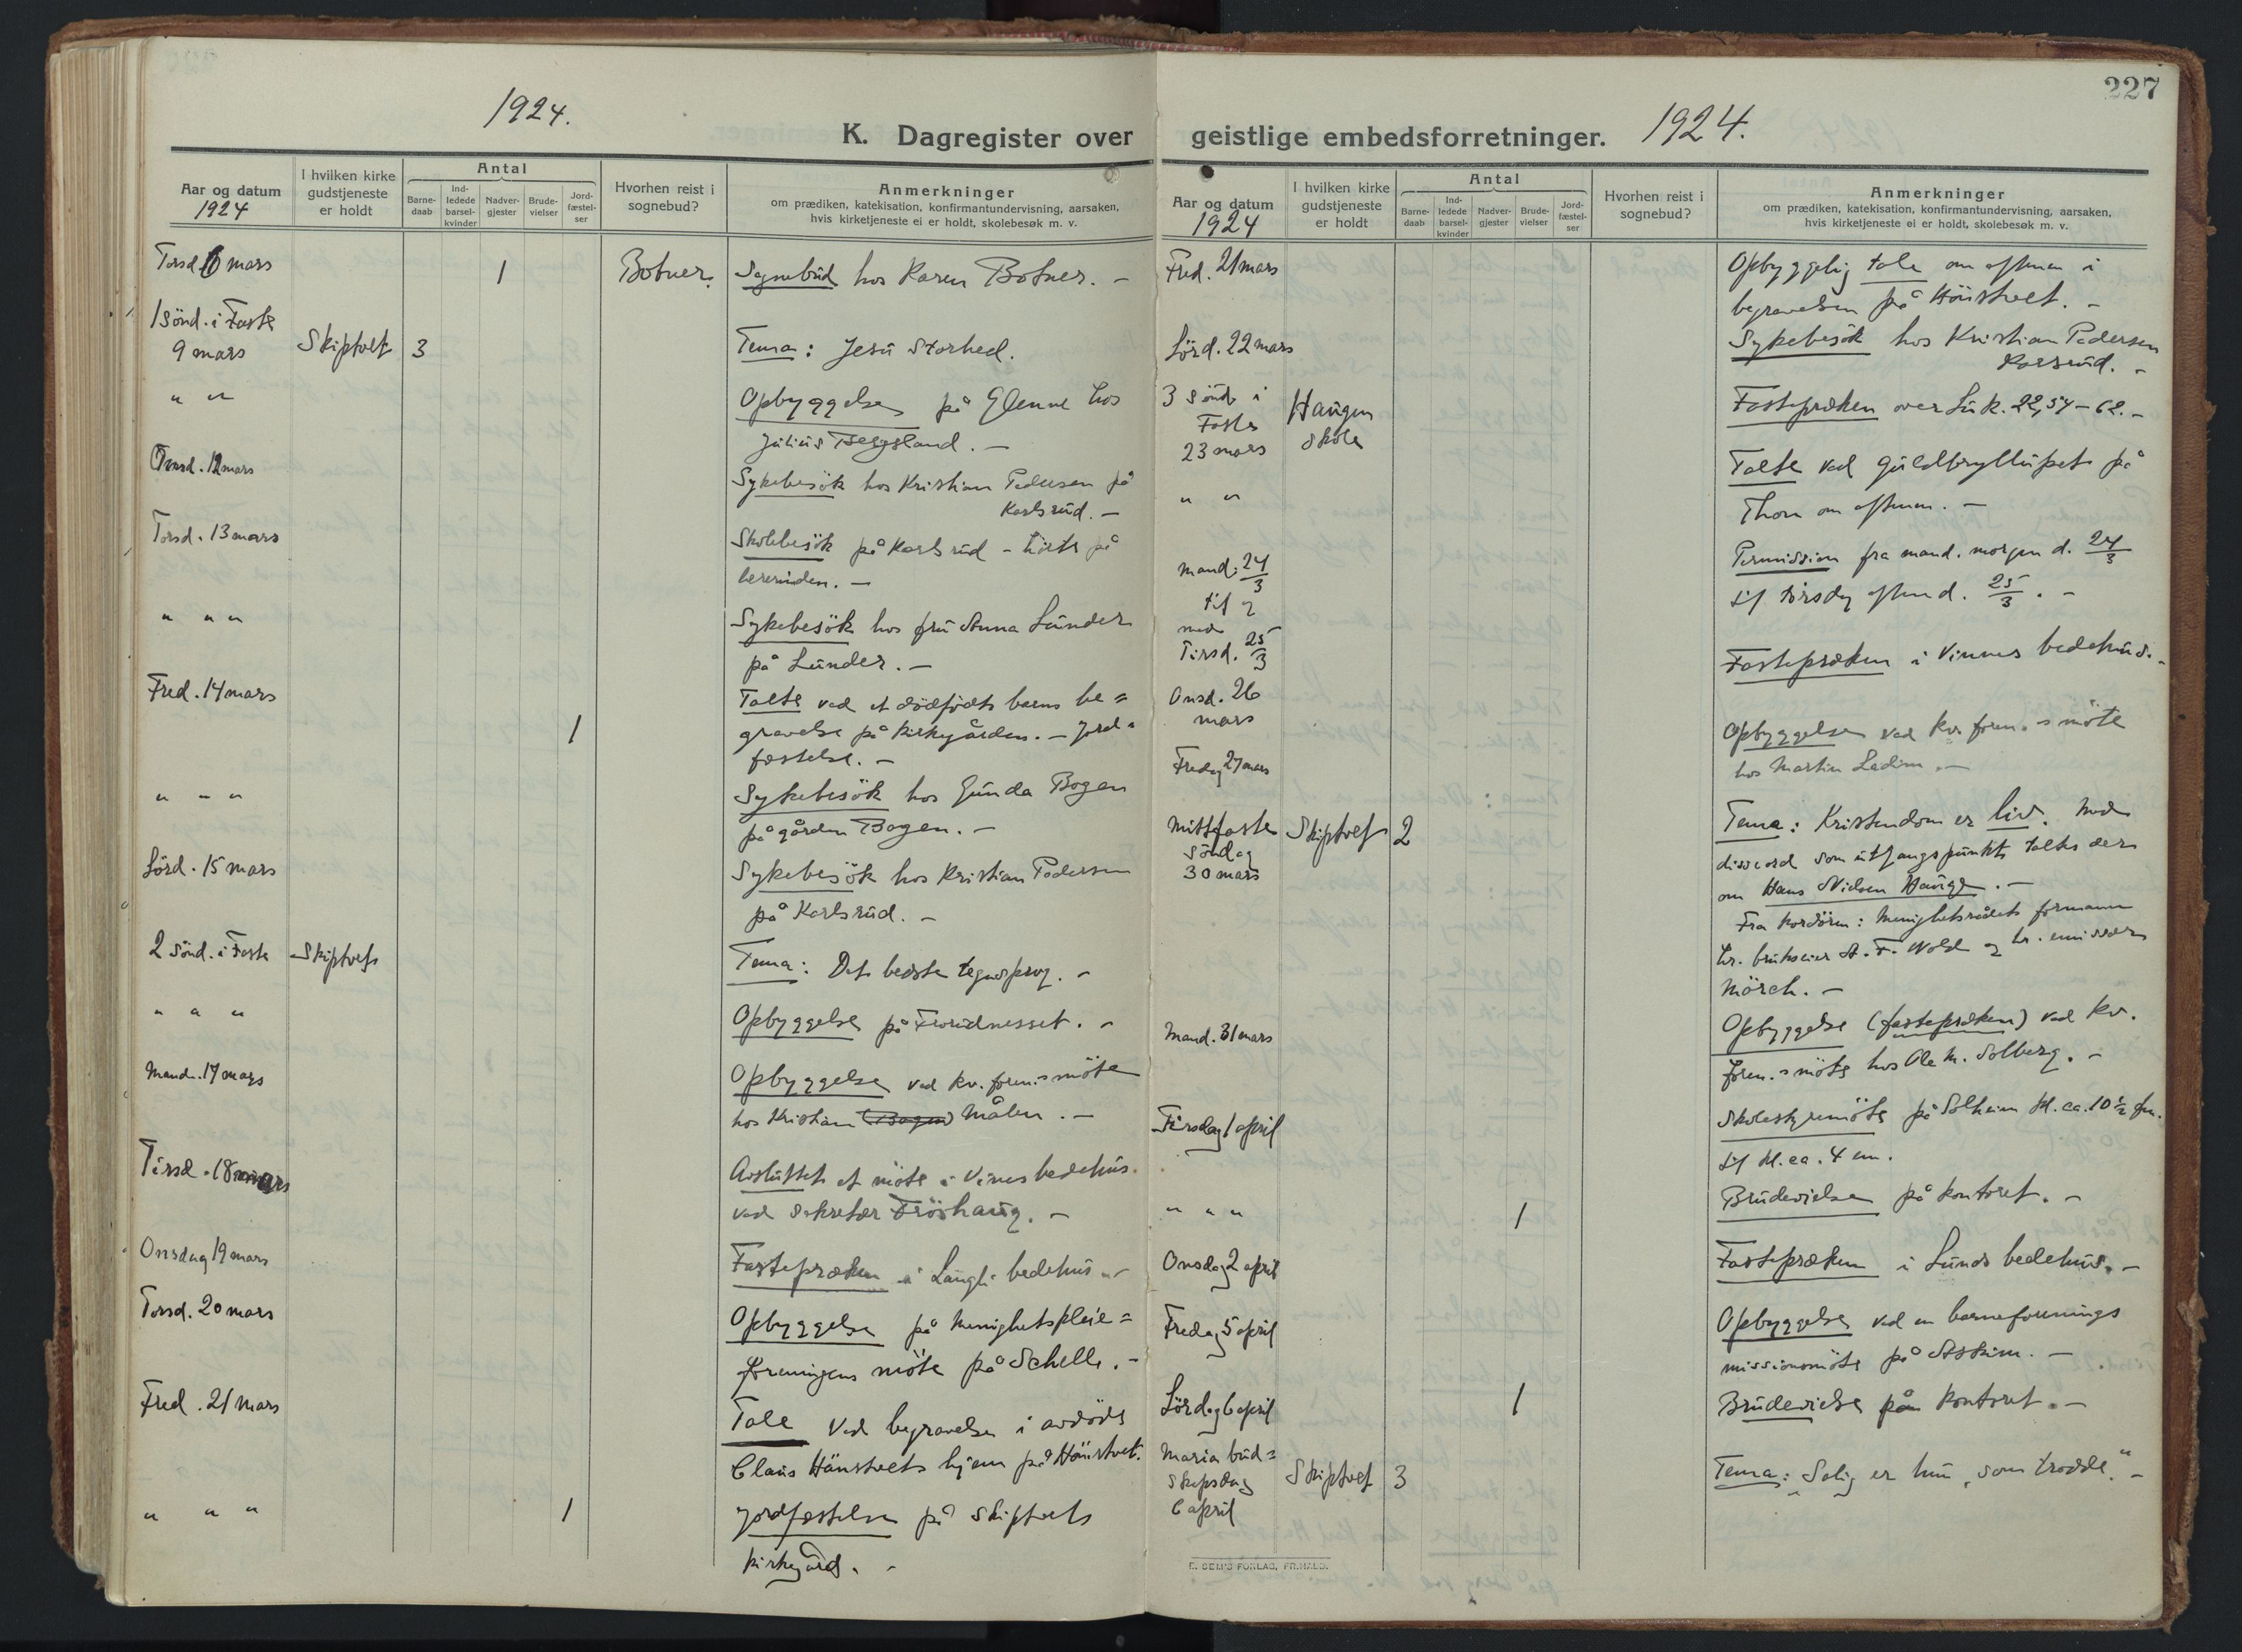 227
1924.
K. Dagregister over
geistlige embedsforretninger. 1924.
Aar og datum
1924
I hvilken kirke
gudstjeneste
er holdt
Antal
Barne-
daab
Ind-
ledede
barsel-
kvinder
Nadver-
gjester
Brude-
vielser
Jord-
fæstel-
ser
Hvorhen reist i
sognebud?
Anmerkninger
om prædiken, katekisation, konfirmantundervisning, aarsaken,
hvis kirketjeneste ei er holdt, skolebesøk m. v.
Torsd. 6 mars 1 Botner. Sognebud hos Karen Botner. -
1 sönd. i Faste
9 mars Skiptvet 3 Tema: Jesu storhed.
" " Opbyggelse på Glenne hos
Julius Bergsland. -
Onsd. 12 mars Sykebesök hos Kristian Pedersen på
Karlsrud. -
Torsd. 13 mars Skolebesök på Karlsrud - hörte på
lærerinden. -
" " " Sykebesök hos fru Anna Lunder
på Lunder. -
Fred. 14 mars Talte ved et dödfödt barns be=
1 gravelse på kirkegården. - Jord=
fæstelse. -
" " " Sykebesök hos Gunda Bogen
på gården Bogen. -
Lörd. 15 mars Sykebesök hos Kristian Pedersen
på Karlsrud. -
2 sönd. i Faste Skiptvet Tema: Det bedste tegnsprog. -
" " " Opbyggelse på . -
Mand. 17 mars Opbyggelse ved kv. foren.s möte
hos Kristian (Bogen) Målen. -
Tirsd. 18 mars Avsluttet et möte i Vines bedehus
ved sekretær Fröshaug. -
Onsdag 19 mars Fastepræken i Langli bedehus. -
Torsd. 20 mars Opbyggelse på Menighetspleie=
foreningens möte på Schelle. -
Fred. 21 mars Tale ved begravelse i avdöde
Claus Hünstvets hjem på Hünstvet.
" " " 1 Jordfæstelse på Skiptvets
kirkegård. -
Aar og datum
1924
I hvilken kirke
gudstjeneste
er holdt
Antal
Barne-
daab
Ind-
ledede
barsel-
kvinder
Nadver-
gjester
Brude-
vielser
Jord-
fæstel-
ser
Hvorhen reist i
sognebud?
Anmerkninger
om prædiken, katekisation, konfirmantundervisning, aarsaken,
hvis kirketjeneste ei er holdt, skolebesøk m. v.
Fred. 21 mars Opbyggelig tale om aftenen i
begravelsen på Hünstvet. -
Lörd. 22 mars Sykebesök hos Kristian Pedersen
Karsrud. -
3 sönd. i
Faste
23 mars Haugen
skole Fastepræken over Luk. 22,54-62. -
" " Talte ved guldbryllupet på
Thon om aftenen. -
Mand. 24/3
til og
med
Tirsd. 25/3 Permission fra mand. morgen d. 24/3
til tirsdag aften d. 25/3. -
Onsd. 26
mars Fastepræken i Vinnes bedehus. -
Fredag 27 mars Opbyggelse ved kv. foren.s möte
hos Martin Ladim. -
Mittfaste
söndag
30 mars Skiptvet 2 Tema: Kristendom er liv. Med
disse ord som utgangspunkt taltes der
om Hans Nielsen Hauge. -
Fra kordören: Menighetsrådets formann
hr. brukseier A. F. Wold og hr. emissær
Mörch. -
Mand. 31 mars Opbyggelse (fastepræken) ved kv.
foren.s möte hos Ole M. Solberg. -
Tirsdag 1 april Skolestyremöte på Solheim kl. ca. 10 1/2 fm.
til kl. ca. 4 em.
" " " 1 Brudevielse på kontoret. -
Onsdag 2 april Fastepræken i Lunds bedehus. -
Fredag 5 april Opbyggelse ved en barneforenings
missionsmöte på Askim. -
Lördag 6 april 1 Brudevielse på kontoret. -
Maria bud=
skapsdag
6 april Skiptvet 3 Tema: „Salig er hun, som trodde." -
E. SEM'S FORLAG, FR.HALD.